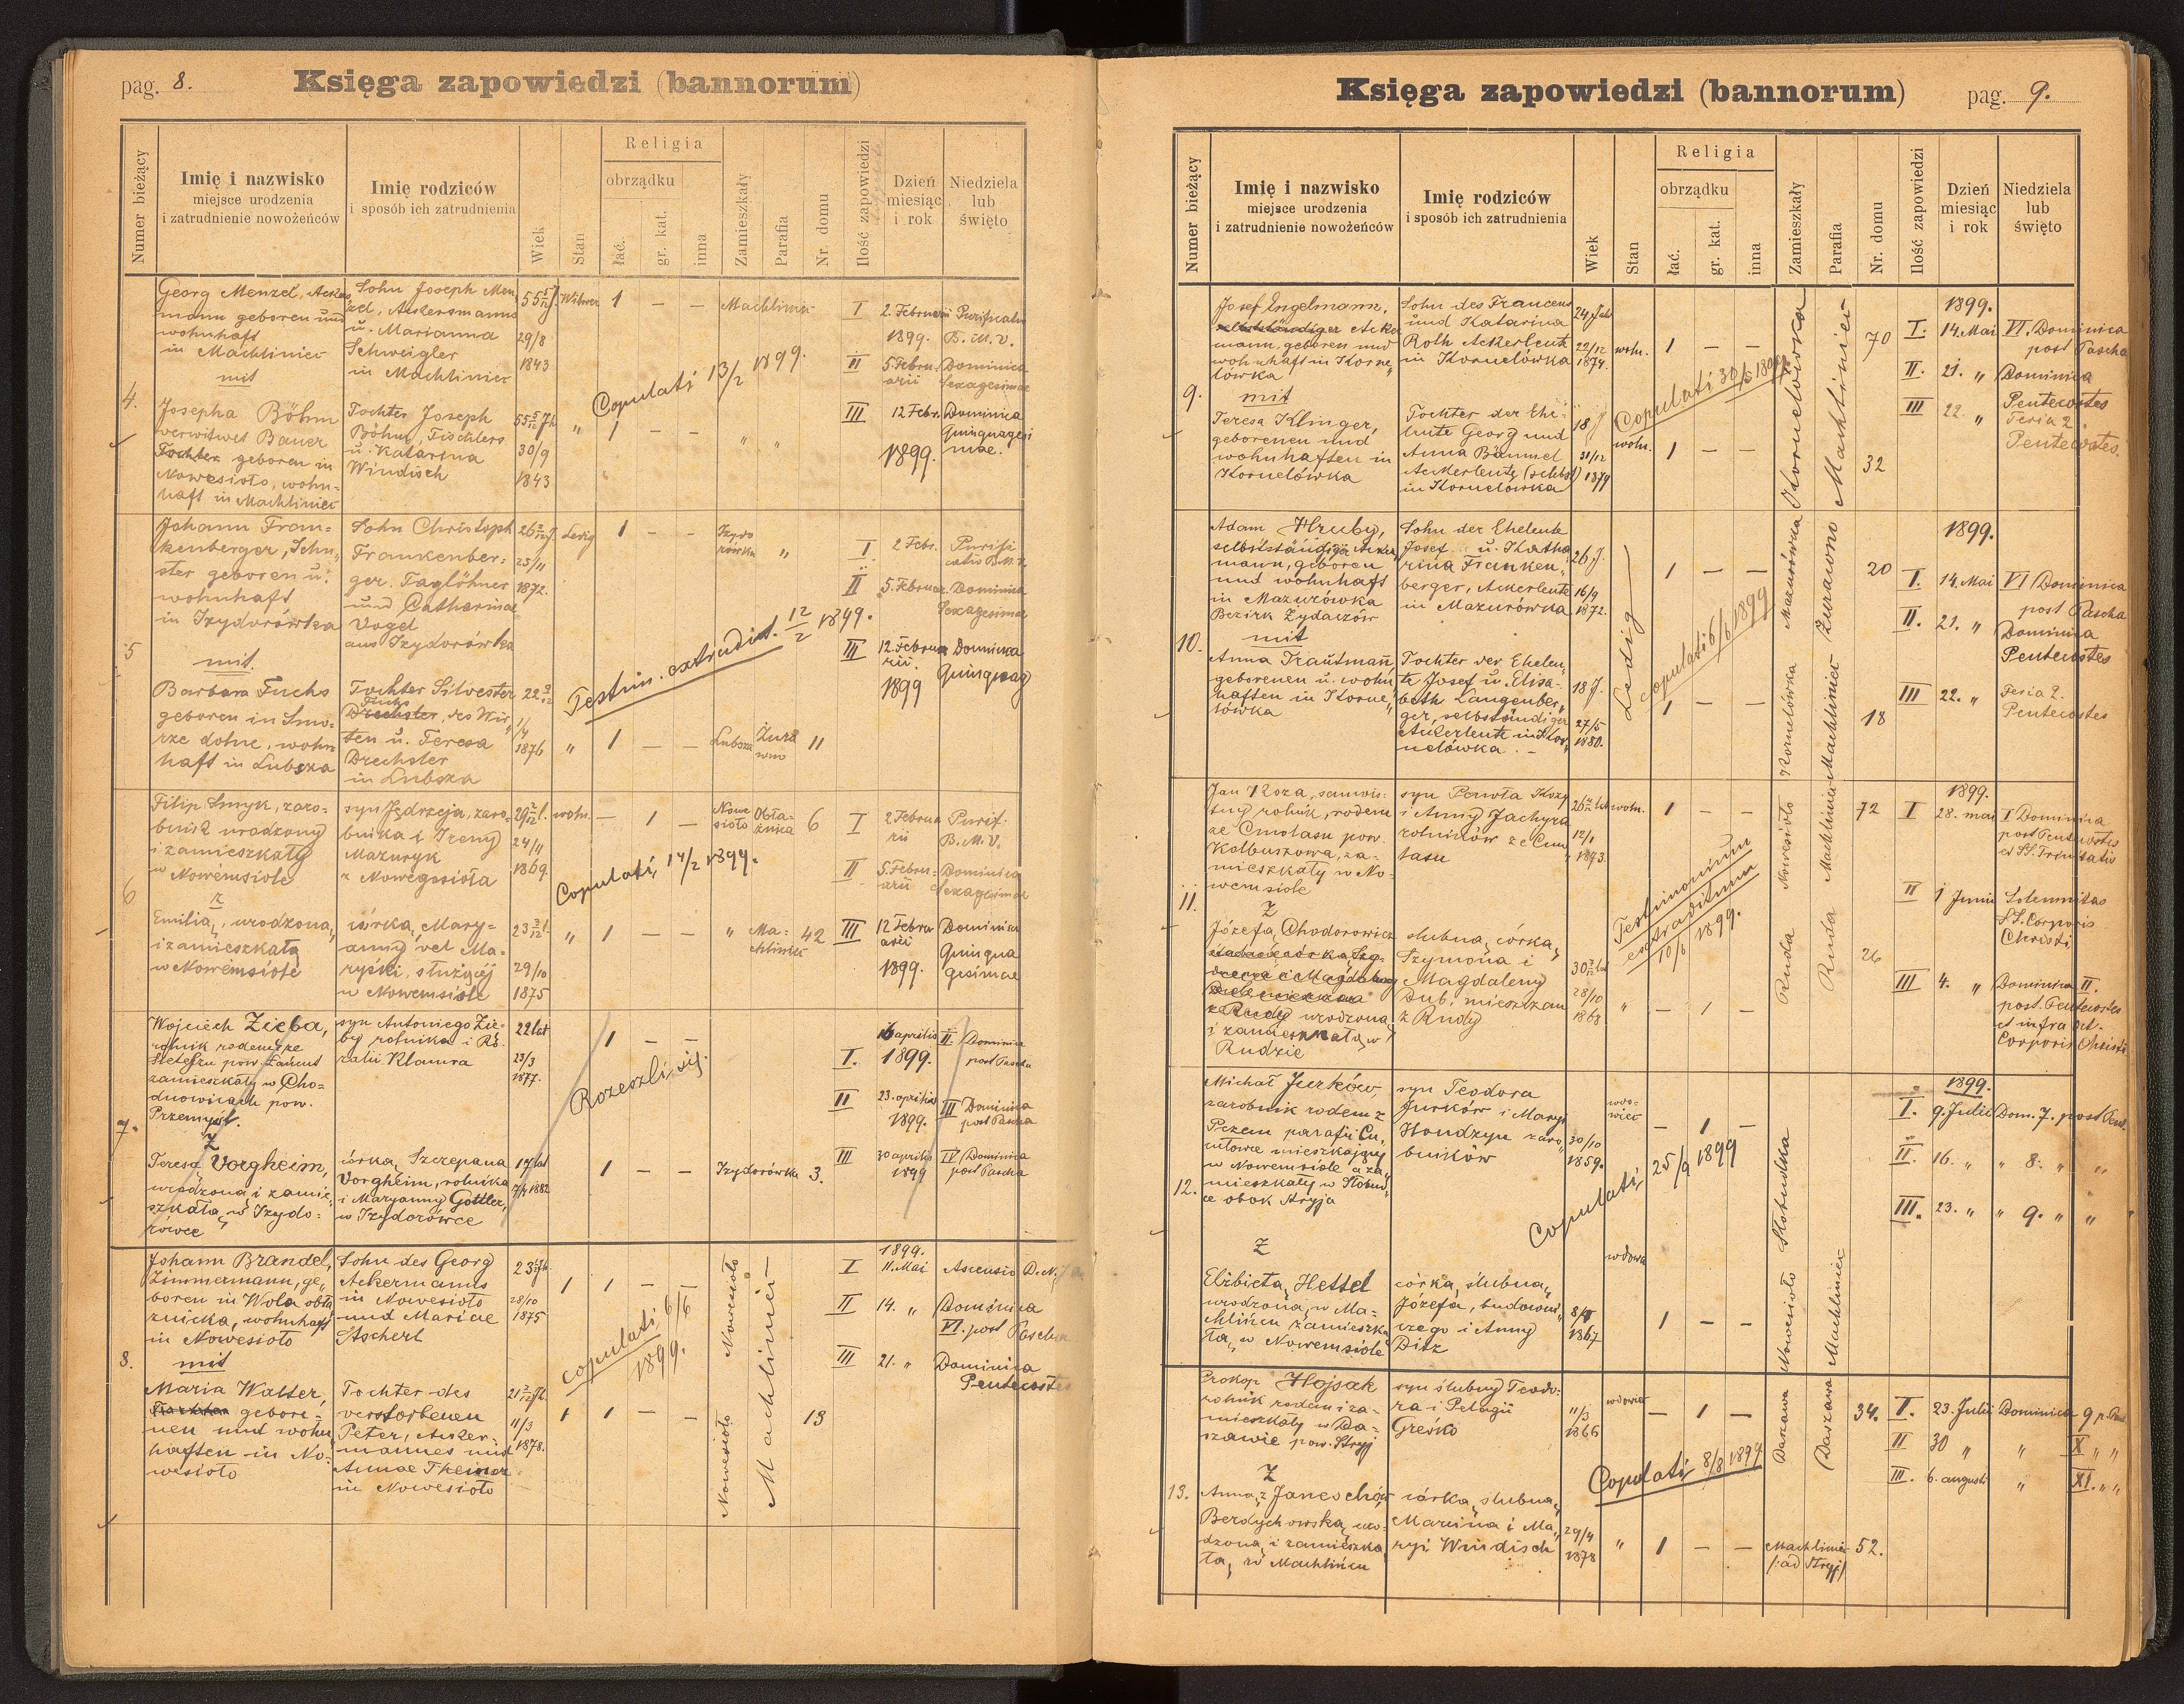 pag. 8.
Księga zapowiedzi (bannorum)
Numer bieżący
Imię i nazwisko
miejsce urodzenia
i zatrudnienie nowożeńców
Imię rodziców
i sposób ich zatrudnienia
Wiek
Stan
Religia
obrządku
łać.
gr. kat.
inna
Zamieszkały
Parafia
Nr. domu
Ilość zapowiedzi
Dzień
miesiąc
i rok
Niedziela
lub
święto
4.
Georg Menzel, Acker
mann geboren und
wohnhaft
in Machliniec
mit
Josepha Böhm
verwitwet Bauer
Tochter geboren in
Nowesioło, wohn=
haft in Machliniec
Sohn Joseph Men
zel, Ackersmanns
u. Marianna
Schweigler
in Machliniec
Tochter Joseph
Böhm, Tischlers
u. Katarina
Windisch
55 5/12 J.
29/8
1843
55 5/12 Jh
30/9
1843
Witwer
"
1 — —
1 — —
Machliniec
" "
Copulati 13/2 1899.
I 2. Februarii Purificatio
1899. B. M. V.
II 5. Febru- Dominica
arii Sexagesimae
III 12 Febr. Dominica
Quinquagesi
mae.
1899.
5
Johann Fran=
kenberger, Schu"
ster geboren u.
wohnhaft
in Izydorówka
mit.
Barbara Fuchs
geboren in Smo=
rze dolne, wohn
haft in Lubsza
Sohn Christoph
Frankenber=
ger. Taglöhner
und Catharinae
Vogel
aus Izydorówka
Tochter Silvester
Fuchs
Drechsler, des Wir"
ten u. Teresa
Drechsler
in Lubsza
26 2/12 J.
25/11
1872.
22
1/4
1876
Ledig
"
1 — —
1 — —
Izydo
rówka "
Lubsza Żura
wno 11
Testim. extradit. 12/2 1899.
I 2 Febr. Purifi
catio B.M.V.
II 5. Februar. Dominica
Sexagesimae
III 12. Februa Dominica
rii. Quinquag
1899
6
Filip Smyk, zaro=
bnik urodzony
i zamieszkały
w Nowemsiole
z
Emilia, urodzona,
i zamieszkała
w Nowemsiole
syn Jędrzeja, zaro=
bnika i Ireny
Mazuryk
z Nowegosioła
córka, Mary=
anny vel Ma=
ryśki, służącej
w Nowemsiole
29 2/12 l.
24/11
1869
23 3/12 l.
29/10
1875
woln.
"
— 1 —
1 — —
Nowe Obła=
sioło źnica 6
" Ma=
chliniec 42
Copulati, 14/2 1899.
I 2 Februa Purif.
rii B. M. V.
II 5. Febru= Dominica
arii Sexagesimae
III 12 Febru Dominica
arii Quinqua
1899. gesimae
7.
Wojciech Zięba,
rolnik rodem ze
pow. Łańcut
zamieszkały w Cho=
dnowicach pow.
Przemyśl.
Z
Teresa, Vorgheim,
urodzona i zamie"
szkała, w Izydo=
rówce
syn Antoniego Zię=
by rolnika i Ro"
zalii Klamra
córka, Szczepana
Vorgheim, rolnika
i Maryanny Göttler,
w Izydorówce
22 lat
23/3
1877.
17 lat
7/4 1882
1 — —
1 — —
Izydorówka 3.
Rozeszli się.
I. 16 aprilis II. Dominica
1899. post Pascha
II 23. aprilis III Dominica
1899. post Pascha
III 30 aprilis IV Dominica
1899 post Pascha
8.
Johann Brandel,
Zimmermann, ge"
boren in Wola obła
znicka, wohnhaft
in Nowesioło
mit
Maria Walter,
gebore=
nen und wohn
haften in No=
wesioło
Sohn des Georg
Ackermanns
in Nowesioło
und Mariae
Ascherl
Tochter des
verstorbenen
Peter, Acker=
mannes und
Annae Theiner
in Nowesioło
28/10
1875
11/3
1878.
1 1 — —
1 1 — —
Nowesioło
Nowesioło
Machliniec —
13
copulati 6/6
1899.
1899.
I 11. Mai Ascensio D.N.
II 14. " Dominica
VI. post Pascha
III 21. " Dominica
Pentecostes
Księga zapowiedzi (bannorum)
pag. 9.
Numer bieżący
Imię i nazwisko
miejsce urodzenia
i zatrudnienie nowożeńców
Imię rodziców
i sposób ich zatrudnienia
Wiek
Stan
Religia
obrządku
łać.
gr. kat.
inna
Zamieszkały
Parafia
Nr. domu
Ilość zapowiedzi
Dzień
miesiąc
i rok
Niedziela
lub
święto
9.
Josef Engelmann,
selbständiger Acker
mann, geboren und
wohnhaft in Korne"
lówka
mit
Teresa Klinger,
geborenen und
wohnhaften in
Kornelówka
Sohn des Francens
und Katarina
Roth Ackerleute
in Kornelówka
Tochter der Ehe=
leute Georg und
Anna Bäuml
Ackerleute (selbst)
in Kornelówka
24 Jah
22/12
1874.
18 J
31/12
1879
woln.
woln.
1 — —
1 — —
Kornelówka
Machliniec
70
32
Copulati 30/5 1899
1899.
I. 14. Mai VI. Dominica
post Pascha
II. 21. " Dominica
Pentecostes
III 22. " Feria 2.
Pentecostes.
10.
Adam Hruby,
selbstständiger Acker"
mann, geboren
und wohnhaft
in Mazurówka
Bezirk Żydaczów
mit
Anna Trautmann
geborenen u. wohn
haften in Korne"
lówka
Sohn der Eheleute
Josef u. Katha
rina Franken"
berger, Ackerleute
in Mazurówka
Tochter der Ehelen"
te Josef u. Elisa=
beth Langenber"
ger, selbständiger
Ackerleute in Kor"
nelówka. —
26 J.
16/9
1872.
18 J.
27/5
1880.
Ledig
1 — —
1 — —
Mazurówka
Kornelówka
Żurawno
Machliniec
20
18
copulati 6/6 1899
1899.
I. 14. Mai VI Dominica
post Pascha
II. 21. " Dominica
Pentecostes
III 22. " Feria 2.
Pentecostes
11.
Jan Koza, samois=
tny rolnik, rodem
ze Cmolasu pow.
Kolbuszowa, za=
mieszkały w No=
wemsiole
Z
Józefa, Chodorowicz
z Rudy urodzona,
i zamieszkała, w
Rudzie
syn Pawła Kozy
i Anny Jachyra
rolników ze Cmo
lasu
ślubna, córka,
Szymona i
Magdaleny
Dub, mieszczan
z Rudy
12/1
1873.
28/10
1868
woln.
"
1 — —
— 1 —
Nowesioło
Ruda
Machliniec
Ruda
72
26
Testimonium
extraditum
10/6 1899.
1899.
I 28. mai I Dominica
post Pentecostes
II 1 Junii Solemnitas
SS. Corporis
Christi
III 4. " Dominica II.
post. Pentecostes
et infra oct.
Corporis Christi
12.
Michał Jurków,
zarobnik rodem z
parafii
mieszkający
w Nowemsiole a za"
mieszkały w Słobud"
ce obok Stryja
Z
Elżbieta, Hettel
urodzona, w Ma=
chlińcu zamieszka
ła, w Nowemsiole
syn Teodora
Jurków i Maryi
Hondzyn zaro"
bników
córka, ślubna,
Józefa, budowni"
czego i Anny
Ditz
30/10
1859.
1867
wdo=
wiec
wdowa
— 1 —
1 — —
Słobudka
Nowesioło
Machliniec
Copulati, 25/9 1899
1899.
I. 9. Julii Dom. 7. post Pent.
II. 16. " " 8. " "
III. 23. " " 9. " "
13.
Prokop Hojsak
rolnik rodem i za=
mieszkały w Da=
szawie pow. Stryj
Z
Anna, z Janoschów
Berdychowska, uro=
dzona, i zamieszka
ła, w Machlińcu
syn ślubny Teodo=
ra i Pelagii
Greśko
córka, ślubna,
Marcina i Ma"
ryi Windisch
11/3
1866
29/4
1878
wdowiec
"
— 1 —
1 — —
Daszawa
Daszawa
34.
Machliniec 52.
/:ad Stryj/
Copulati 8/8 1899
I. 23. Julii Dominica 9 p. Pent
II 30 " " X " "
III. 6. augusti " XI. " "